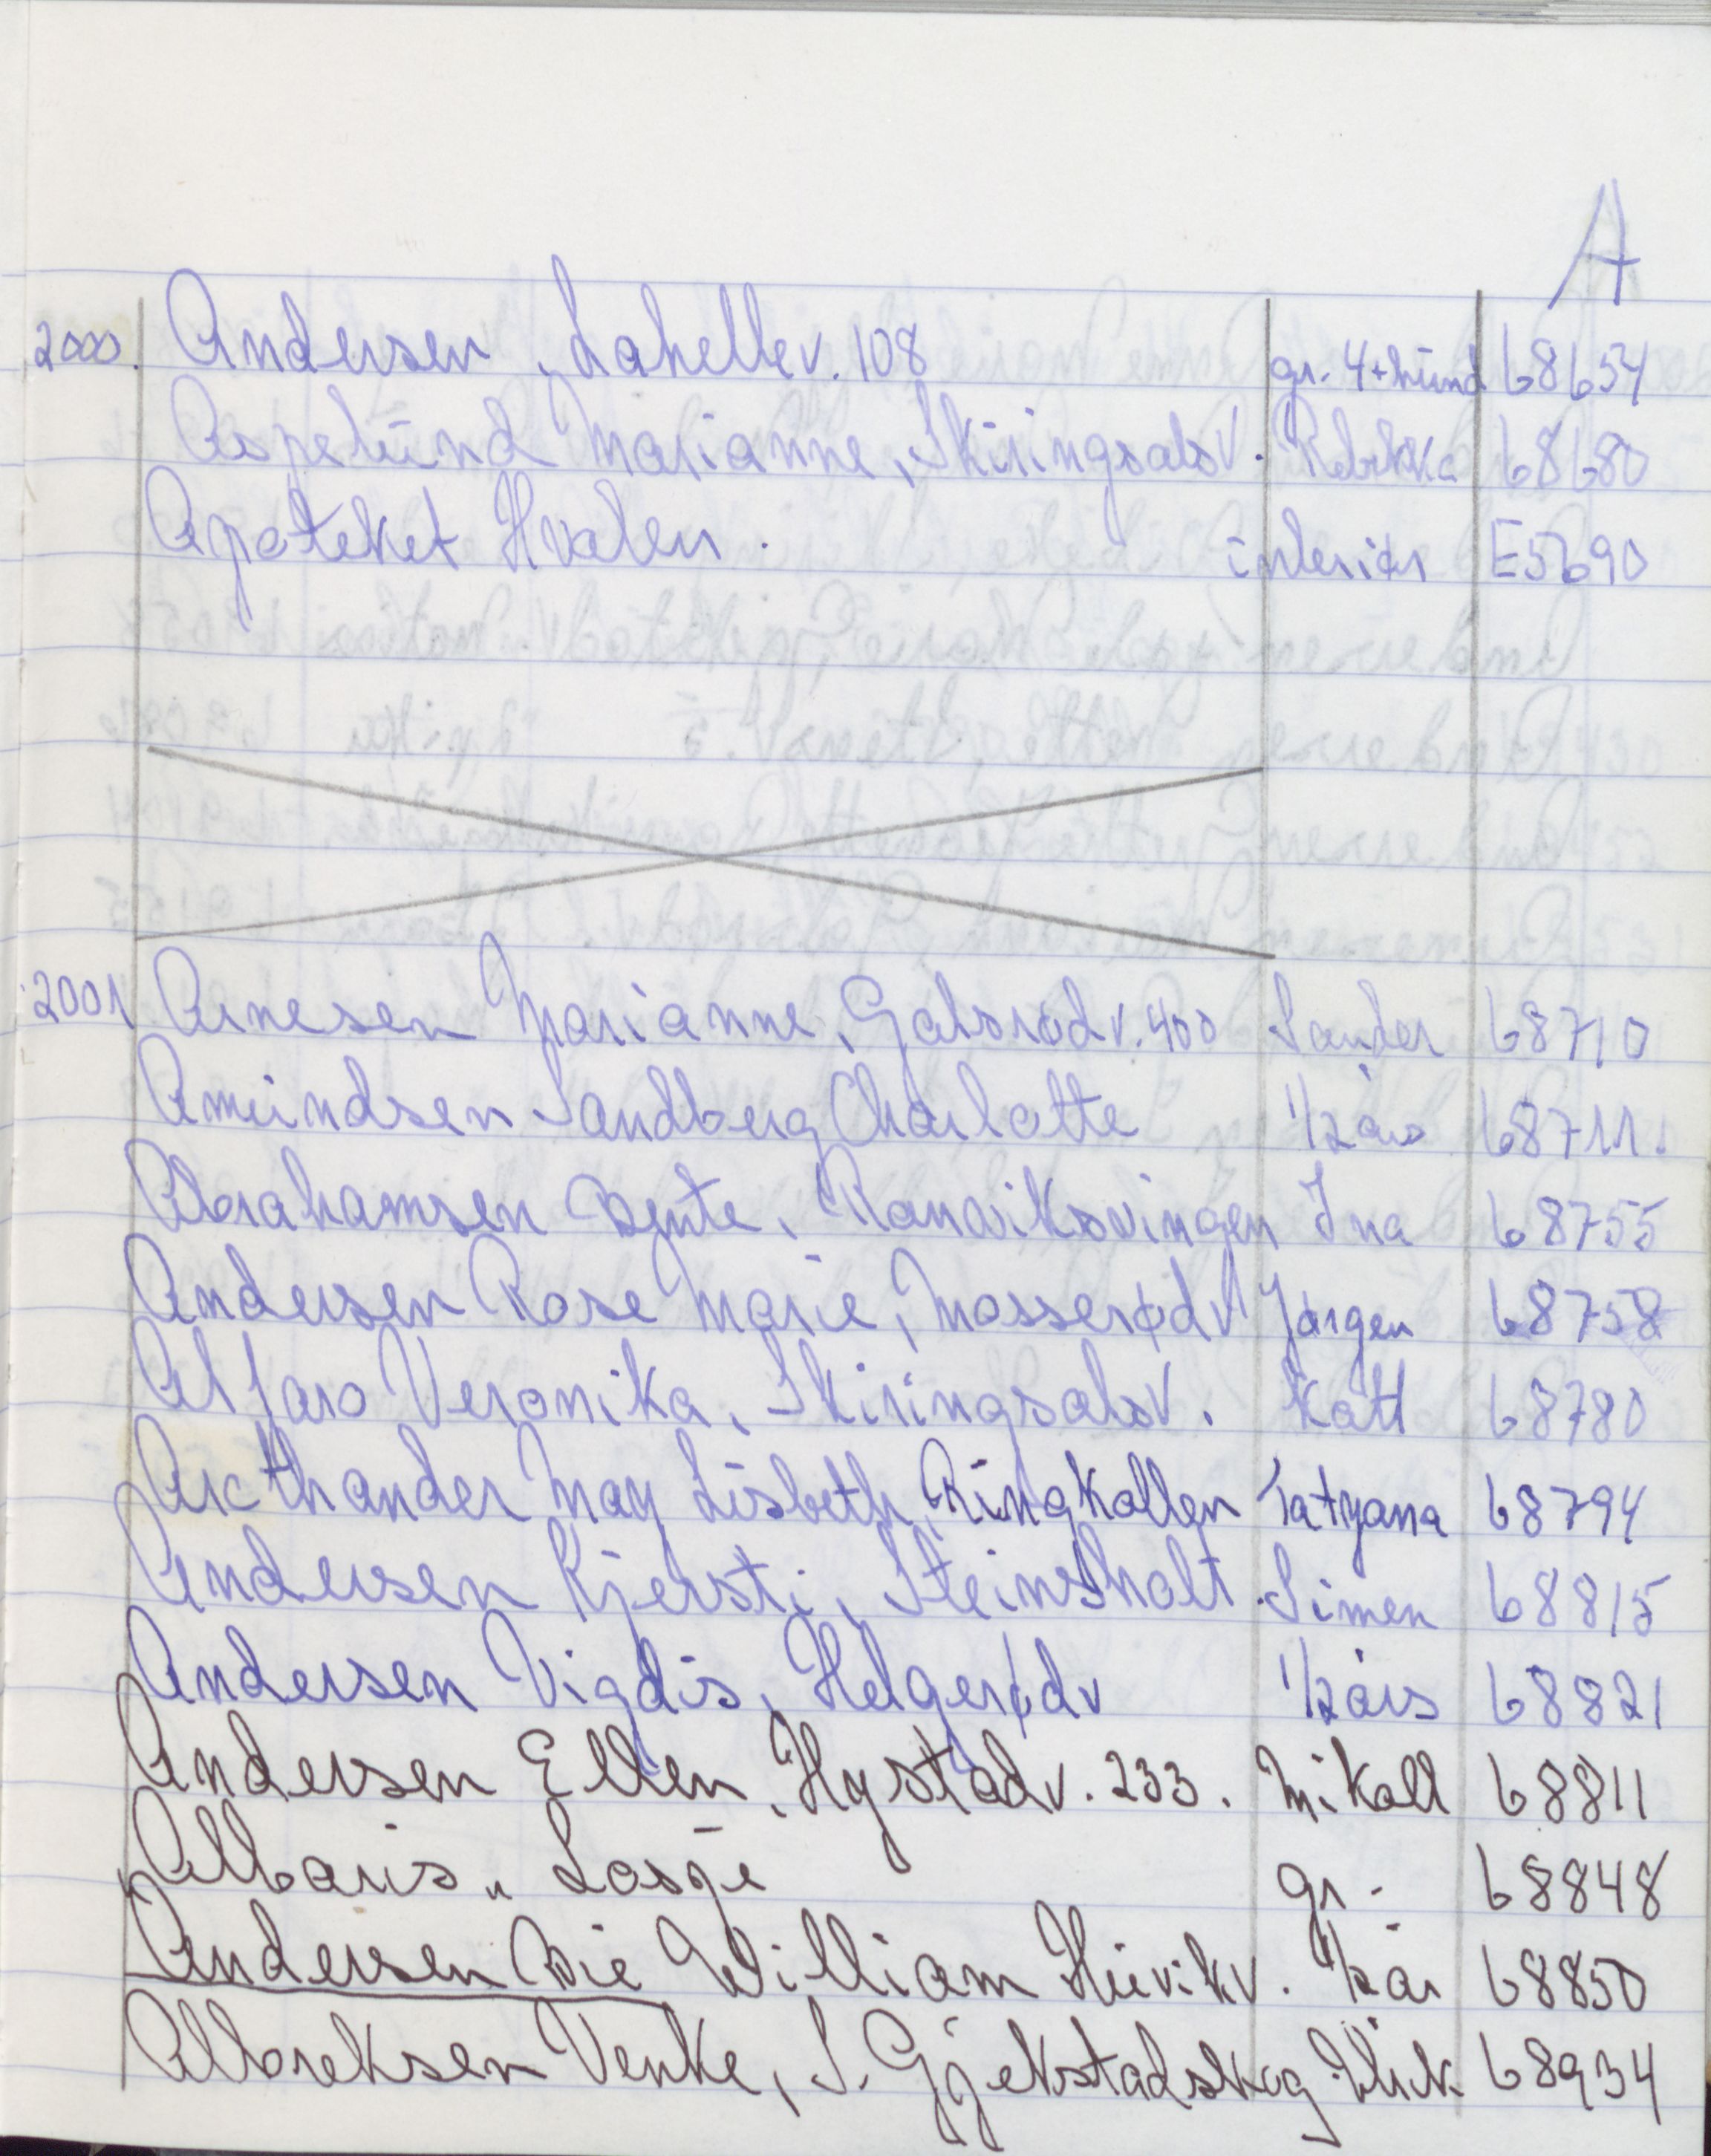 A
2000. Andersen, Lahellev. 108 gr. 4+hund 68654
Aspelund Marianne, Skiringsalsv. Rebekka 68680
Apoteket Hvalen. interiør E5690
2001 Arnesen Marianne, Galsrødv. 400 Sander 68710
Amundsen Sandberg Charlotte 1/2 års 68711.
Abrahamsen Bente, Ranviksvingen Ina 68755
Andersen Rose Marie, Mosserødv Jørgen 68758
Alfaro Veronika, Skiringsalsv. Katt 68780
Arcthander May Lisbeth, Ringkollen Tatyana 68794
Andersen Kjersti, Steinsholt Simen 68815
Andersen Vigdis, Helgerødv 1/2 års 68821
Andersen Ellen, Hystadv. 233. Mikall 68811
Albaris, Losje gr. 68848
Andersen Bie William Huvikv. 1/2 år 68850
Albreksen Venke, S. Gjekstadskog 68934